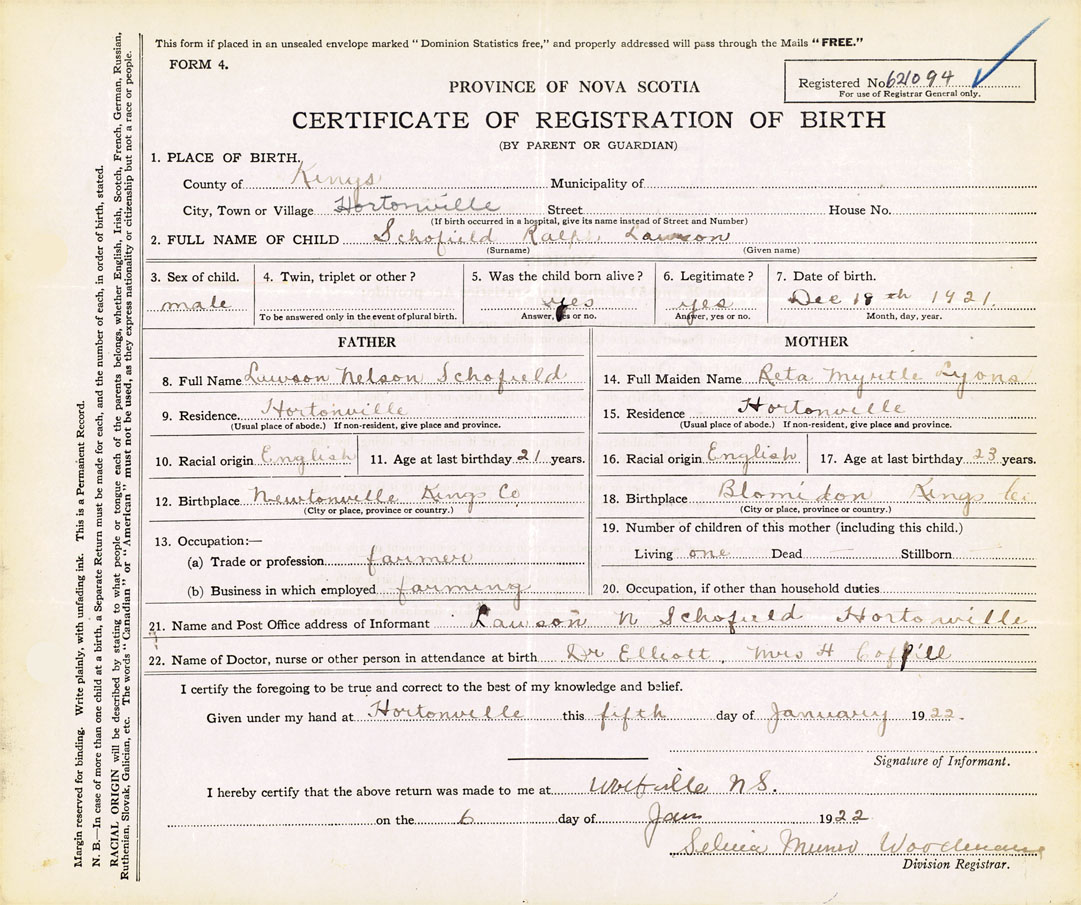 This form if placed in an unsealed envelope marked "Dominion Statistics free," and properly addressed will pass through the Mails "FREE."
FORM 4.
Registered No. 621094
For use of Registrar General only.
PROVINCE OF NOVA SCOTIA
CERTIFICATE OF REGISTRATION OF BIRTH
(BY PARENT OR GUARDIAN)
1. PLACE OF BIRTH.
County of Kings Municipality of
City, Town or Village Hortonville Street House No.
(If birth occurred in a hospital, give its name instead of Street and Number)
2. FULL NAME OF CHILD Schofield Ralph Lawson
(Surname) (Given name)
3. Sex of child. 4. Twin, triplet or other? 5. Was the child born alive? 6. Legitimate? 7. Date of birth.
male yes yes Dec 18th 1921.
To be answered only in the event of plural birth. Answer, yes or no. Answer, yes or no. Month, day, year.
FATHER
8. Full Name Lawson Nelson Schofield
9. Residence. Hortonville
(Usual place of abode.) If non-resident, give place and province.
10. Racial origin English 11. Age at last birthday 21 years.
12. Birthplace Newtonville Kings Co
(City or place, province or country.)
13. Occupation:—
(a) Trade or profession farmer
(b) Business in which employed farming
MOTHER
14. Full Maiden Name Reta Myrtle Lyons
15. Residence Hortonville
(Usual place of abode.) If non-resident, give place and province.
16. Racial origin English 17. Age at last birthday 23 years.
18. Birthplace Blomidon Kings Co
(City or place, province or country.)
19. Number of children of this mother (including this child.)
Living one Dead — Stillborn
20. Occupation, if other than household duties
21. Name and Post Office address of Informant Lawson N Schofield Hortonville
22. Name of Doctor, nurse or other person in attendance at birth Dr Elliott, Mrs H Coffill
I certify the foregoing to be true and correct to the best of my knowledge and belief.
Given under my hand at Hortonville this fifth day of January 1922.
Signature of Informant.
I hereby certify that the above return was made to me at Wolfville NS.
on the 6 day of Jan 1922
Selina Munro Woodman
Division Registrar.
Margin reserved for binding. Write plainly, with unfading ink. This is a Permanent Record.
N. B.—In case of more than one child at a birth, a Separate Return must be made for each, and the number of each, in order of birth, stated.
RACIAL ORIGIN will be described by stating to what people or tongue each of the parents belongs, whether English, Irish, Scotch, French, German, Russian,
Ruthenian, Slovak, Galician, etc. The words "Canadian" or "American" must not be used, as they express nationality or citizenship but not a race or people.